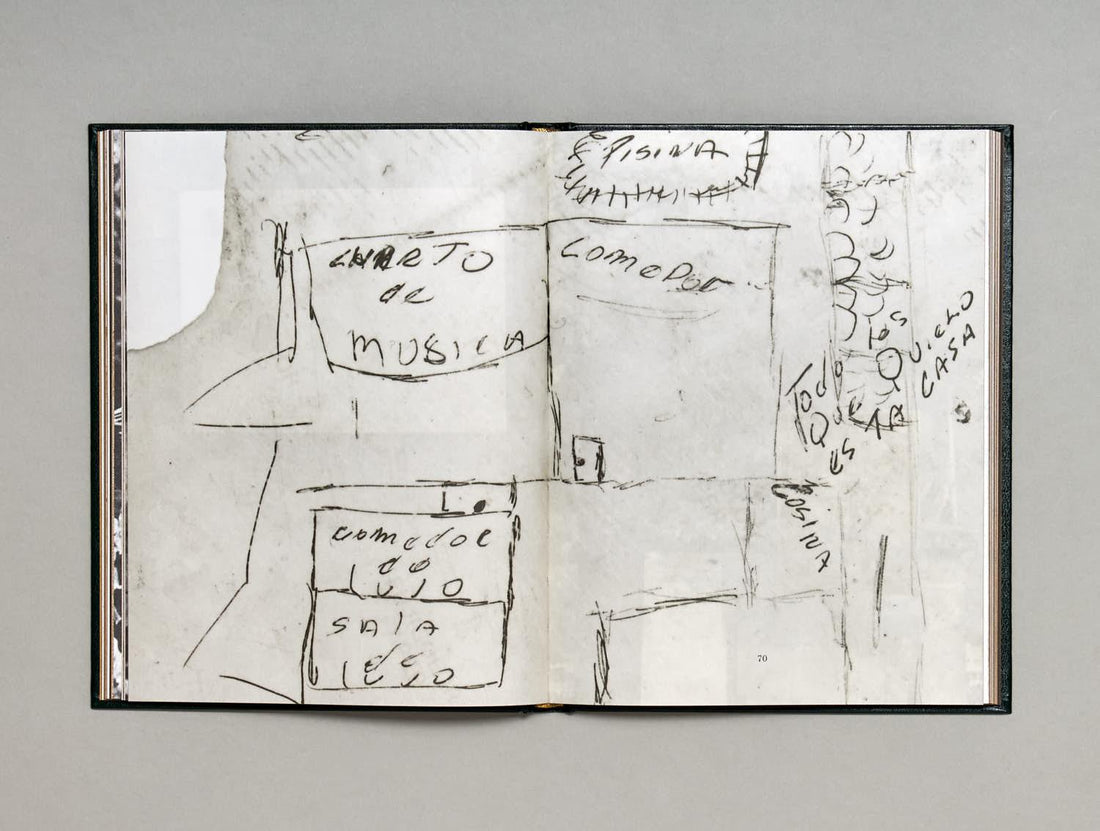 PISINA
CUARTO
de
MUSICA
COMEDOR
TODO
QUE
ES
COSINA
VIEHO
CASA
comedoR
de
lUJO
SALA
de
lUJO
70